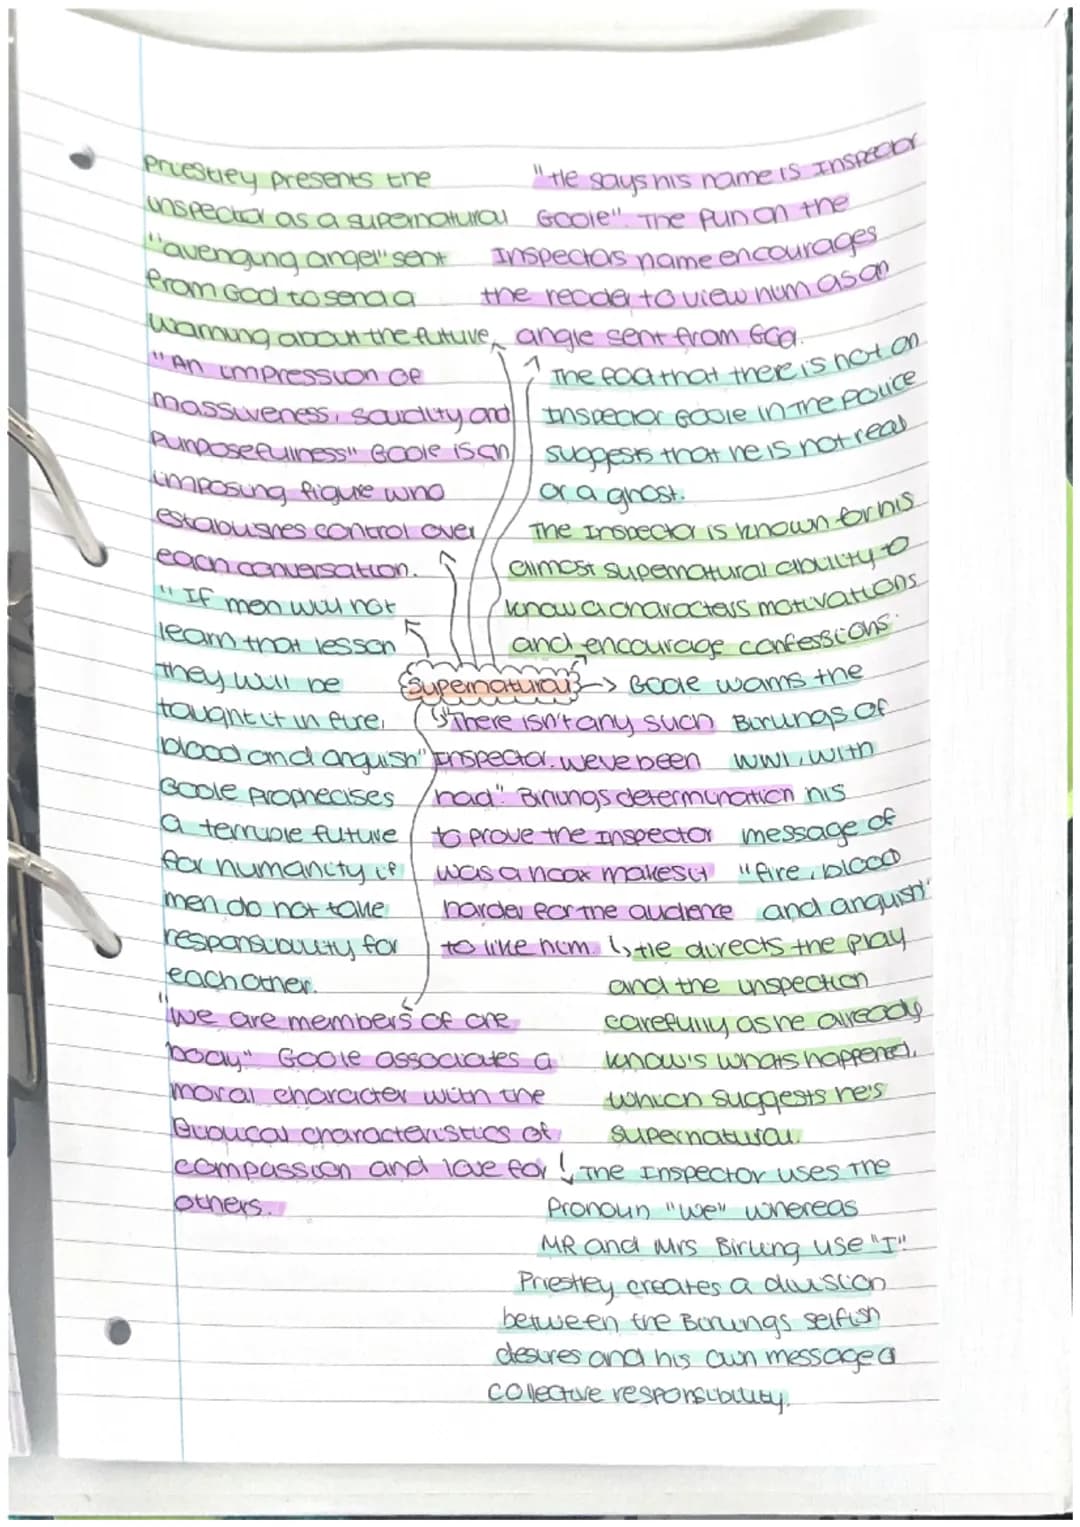 Priestley presents the
inspector as a supernatural
"avenging angel" sent
from God to send a
warning about the future
"An impression of
massiveness, soucidity and
purposefullness" Goole is an
imposing figure who
establishes control over
each conversation.
"If men will not
learn that lesson
they will be
taught it in fire,
blood and anguish"
Goole prophecises
a terrible future
for humanity if
men do not take
responsibility for
each other.
"We are members of one
body" Goole associates a
moral character with the
Biblical characteristics of
compassion and love for
others.
"He says his name is Inspector
Goole". The pun on the
Inspectors name encourages
the reader to view him as an
angle sent from God.
The fact that there is not an
Inspector Goole in the police
suggests that he is not real
or a ghost.
The Inspector is known for his
almost supernatural ability to
know a characters motivations
and encourage confessions.
Supernatural
"There isn't any such
inspector. weve been
had". Birlings determination
to prove the Inspector
was a hoax makes it
harder for the audience
to like him.
Goole warns the
Birlings of
WW1, with
his
message of
"fire, blood
and anguish"
He directs the play
and the inspection
carefully as he already
know's whats happened,
which suggests he's
supernatural.
The Inspector uses the
Pronoun "we" whereas
MR and Mrs Birling use "I"
Priestley creates a division
between the Birlings selfish
desires and his own message a
collective responsibility.